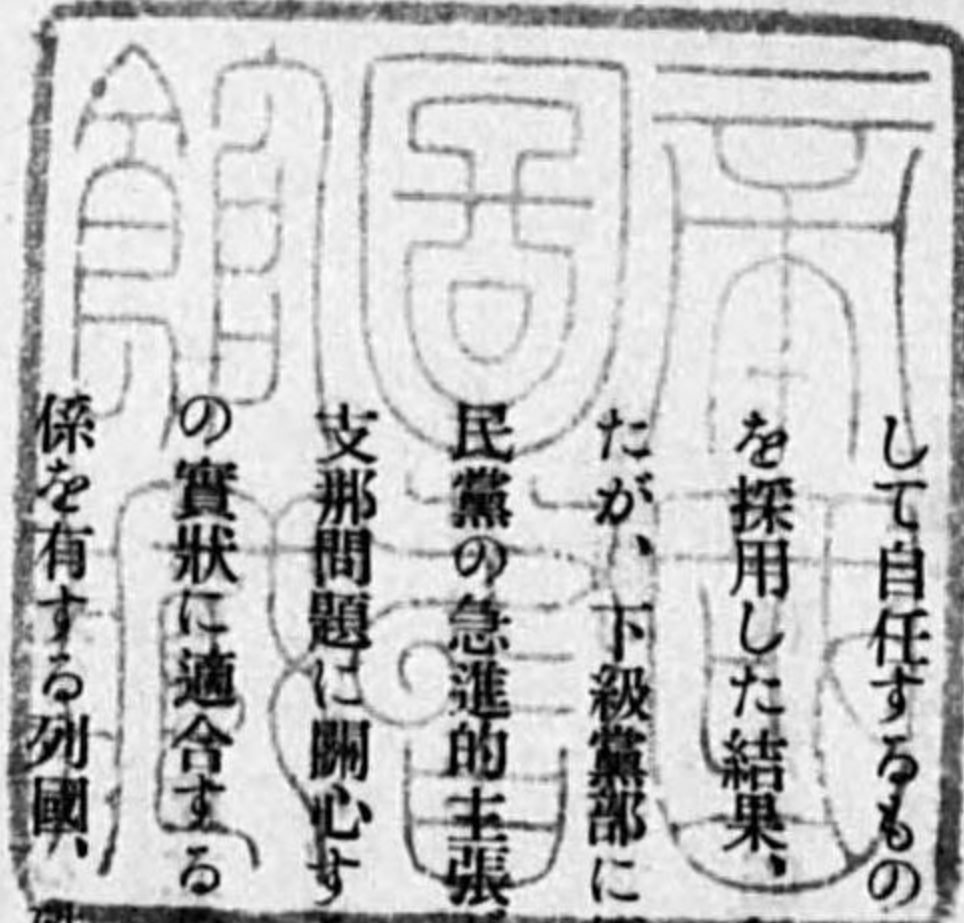 して自任するもの
を採用した結果、
たが、下級黨部に
民黨の急進的主張
支那問題に關心す
の實狀に適合する
係を有する列國、
帝國圖